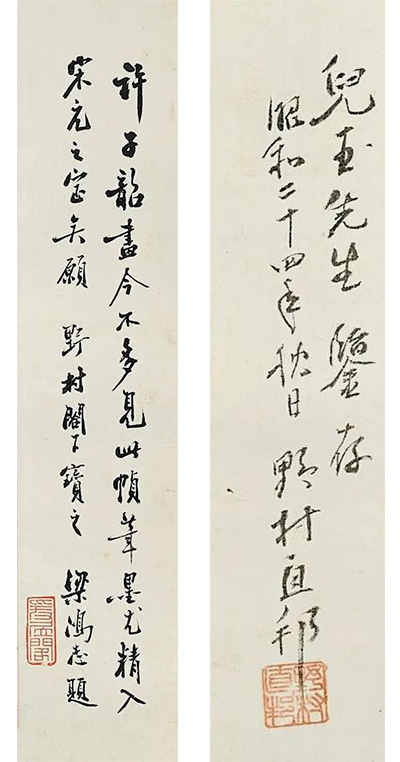 兒玉先生 鑒存
昭和二十四年秋日 野村直邦
野村直邦
許子韶畫今不多見此幀筆墨尤精入
宋元之室矣願 野村閣下寶之 梁鴻志題
爰居閣